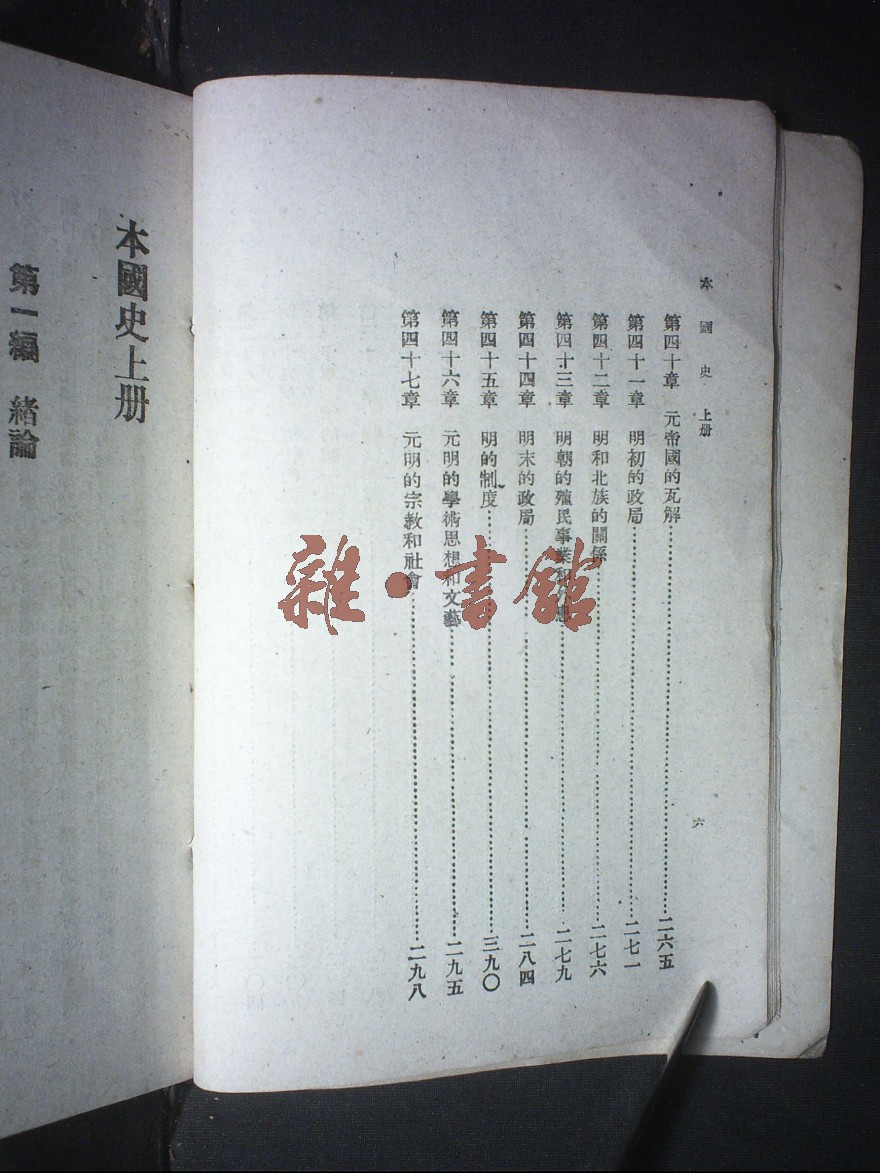 本國史 上册
六
第四十章 元帝國的瓦解……二六五
第四十一章 明初的政局……二七一
第四十二章 明和北族的關係……二七六
第四十三章 明朝的殖民事業和……二七九
第四十四章 明末的政局……二八四
第四十五章 明的制度……三九〇
第四十六章 元明的學術思想和文藝……二九五
第四十七章 元明的宗教和社會……二九八
本國史上册
第一編 緒論
雜·書館